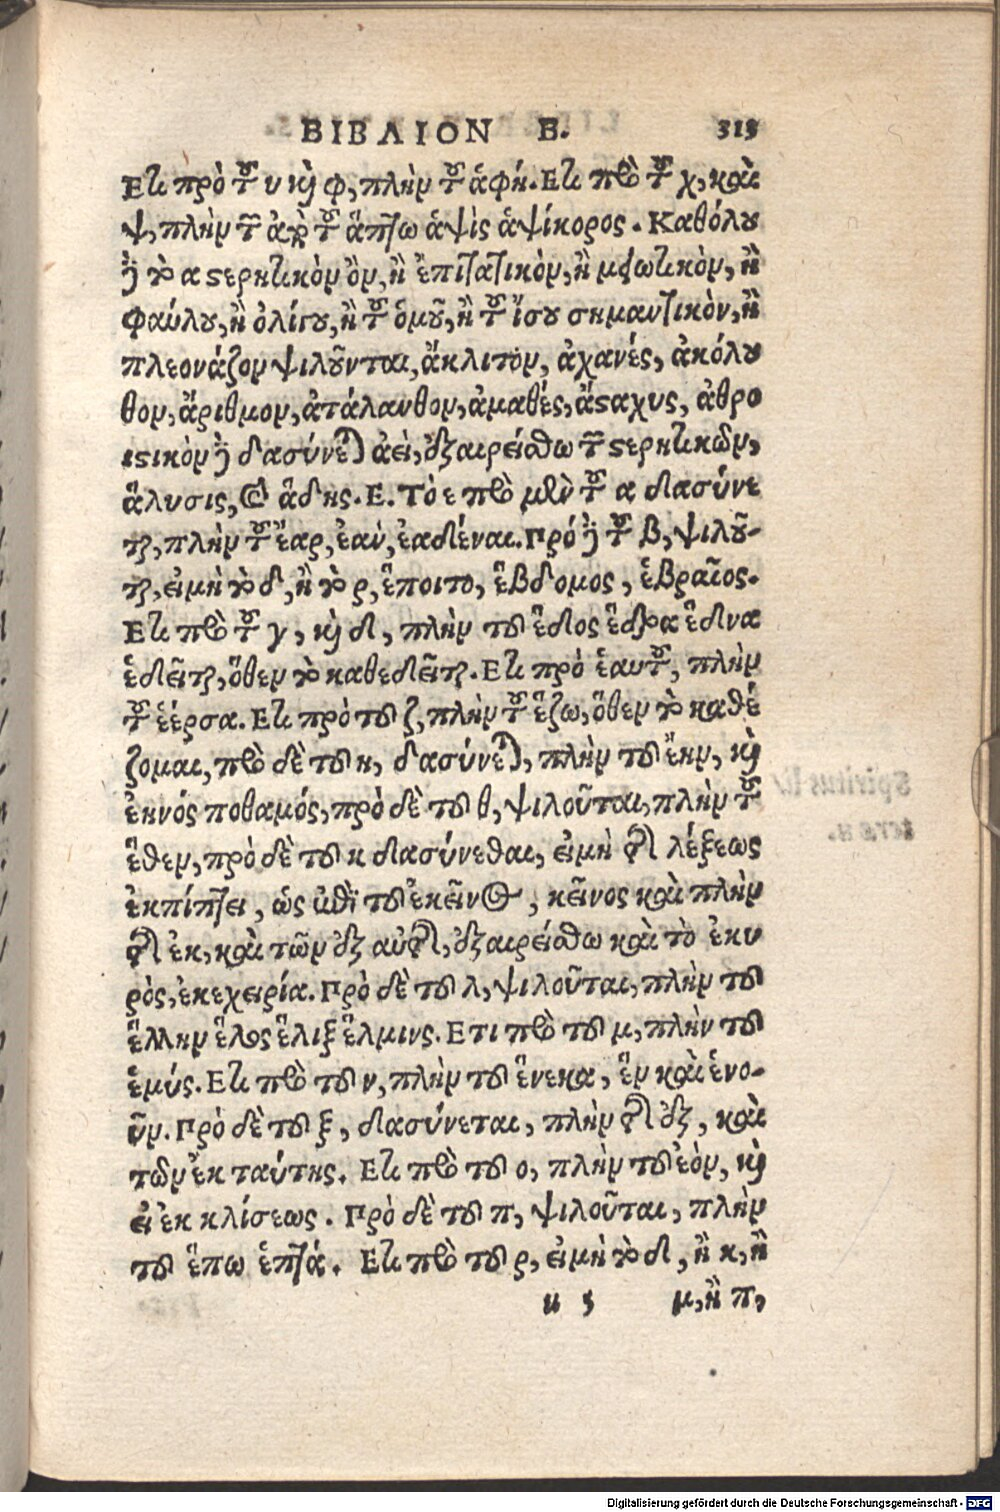 ΒΙΒΛΙΟΝ Β. 313
Ετι πρὸ τοῦ υ καὶ φ, πλὴν τοῦ ἁφή. Ετι πρὸ τοῦ χ, καὶ
ψ, πλὴν τῶν ἀπὸ τοῦ ἅπτω ἁψὶς ἁψίκορος. Καθόλου
δὲ τὸ α στερητικὸν ὂν, ἢ ἐπιτατικὸν, ἢ μειωτικὸν, ἢ
φαύλου, ἢ ὀλίγου, ἢ τοῦ ὁμοῦ, ἢ τοῦ ἴσου σημαντικὸν, ἢ
πλεονάζον ψιλοῦνται, ἄκλιτον, ἀχανές, ἀκόλου
θον, ἄριθμον, ἀτάλανθον, ἀμαθές, ἄσταχυς, ἀθρο
ιστικὸν δὲ δασύνεται ἀεὶ, ἐξαιρείσθω τῶν στερητικῶν,
ἅλυσις, καὶ ἅδης. Ε. Τὸ ε πρὸ μὲν τοῦ α δασύνε
ται, πλὴν τοῦ ἔαρ, ἐαν, ἐαδιέναι. Πρό δὲ τοῦ β, ψιλοῦ-
ται, εἰμὴ τὸ δ, ἢ τὸ ρ, ἕποιτο, ἕβδομος, ἑβραῖος.
Ετι πρὸ τοῦ γ, καὶ δ, πλὴν τοῦ ἕδος ἕδρα ἕδνα
ἑδεῖται, ὅθεν τὸ καθεδεῖται. Ετι πρὸ ἑαυτοῦ, πλὴν
τοῦ ἑέρσα. Ετι πρὸ τοῦ ζ, πλὴν τοῦ ἕζω, ὅθεν τὸ καθέ
ζομαι, πρὸ δὲ τοῦ η, δασύνεται, πλὴν τοῦ ἔην, καὶ
ἐηνός ποθαμός, πρὸ δὲ τοῦ θ, ψιλοῦται, πλὴν τοῦ
ἕθεν, πρὸ δὲ τοῦ κ δασύνεθαι, εἰμὴ τῆς λέξεως
ἐκπίπτει, ὡς ἐπὶ τοῦ ἐκεῖνος, κεῖνος καὶ πλὴν
τῆς ἐκ, καὶ τῶν ἐξ αὐτῆς, ἐξαιρείσθω καὶ τὸ ἑκυ
ρὸς, ἐκεχειρία. Πρὸ δὲ τοῦ λ, ψιλοῦται, πλὴν τοῦ
ἕλλην ἕλος ἕλιξ ἕλμινς. Ετι πρὸ τοῦ μ, πλὴν τοῦ
ἑμύς. Ετι πρὸ τοῦ ν, πλὴν τοῦ ἕνεκα, ἓν καὶ ἑνο-
ῦν. Πρὸ δὲ τοῦ ξ, δασύνεται, πλὴν τῆς ἐξ, καὶ
τῶν ἐκ ταύτης. Ετι πρὸ τοῦ ο, πλὴν τοῦ ἐόν, καὶ
εἰ ἐκ κλίσεως. Πρὸ δὲ τοῦ π, ψιλοῦται, πλὴν
τοῦ ἕπω ἑπτά. Ετι πρὸ τοῦ ρ, εἰμὴ τὸ δ, ἢ κ, ἢ
u 5 μ, ἢ π,
Digitalisierung gefördert durch die Deutsche Forschungsgemeinschaft - DFG